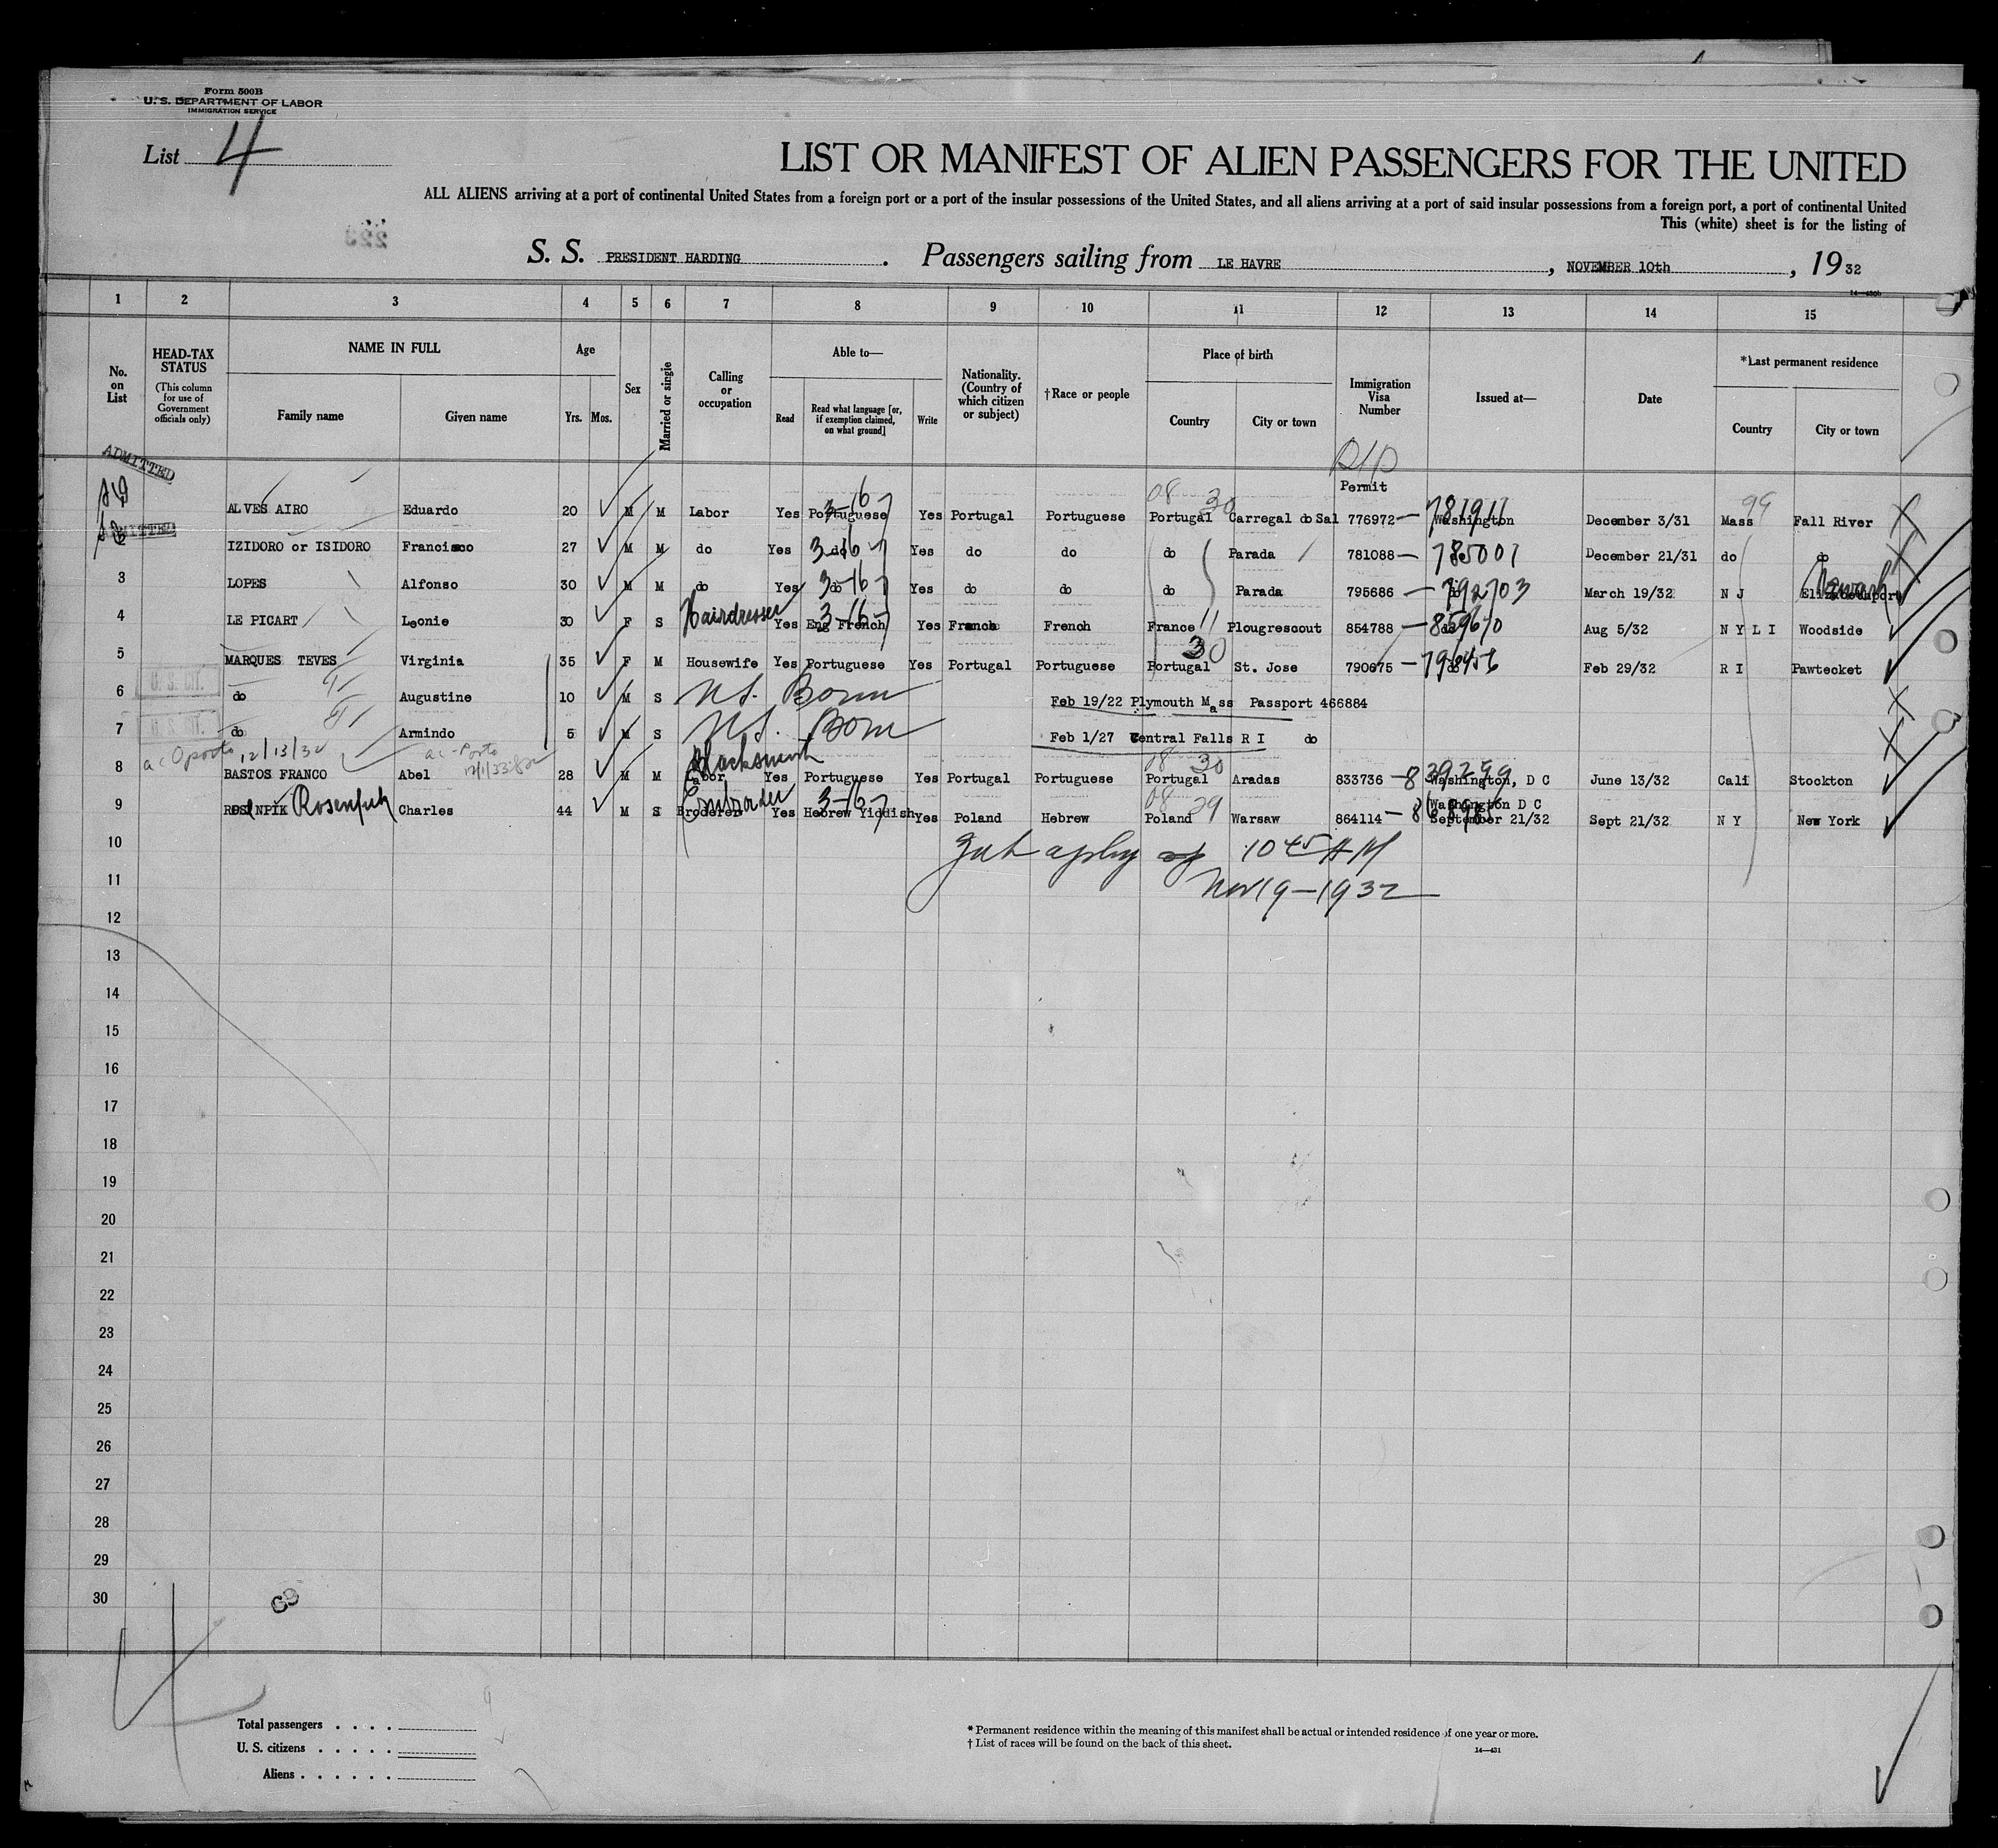 Form 500B
U. S. DEPARTMENT OF LABOR
IMMIGRATION SERVICE
List 4
LIST OR MANIFEST OF ALIEN PASSENGERS FOR THE UNITED
ALL ALIENS arriving at a port of continental United States from a foreign port or a port of the insular possessions of the United States, and all aliens arriving at a port of said insular possessions from a foreign port, a port of continental United
This (white) sheet is for the listing of
S. S. PRESIDENT HARDING. Passengers sailing from LE HAVRE, NOVEMBER 10th, 1932
1 2 3 4 5 6 7 8 9 10 11 12 13 14 15
No. on List
HEAD-TAX STATUS
(This column for use of Government officials only)
NAME IN FULL
Family name
Given name
Age
Yrs. Mos.
Sex
Married or single
Calling or occupation
Able to—
Read
Read what language [or, if exemption claimed, on what ground]
Write
Nationality. (Country of which citizen or subject)
†Race or people
Place of birth
Country
City or town
Immigration Visa Number
Issued at—
Date
*Last permanent residence
Country
City or town
ADMITTED
Permit
ALVES AIRO Eduardo 20 M M Labor Yes Portuguese 3-16-7 Yes Portugal Portuguese 08 30 Portugal Carregal do Sal 776972— Washington 781911 December 3/31 Mass 99 Fall River
ADMITTED
IZIDORO or ISIDORO Francisco 27 M M do Yes do 3-16-7 Yes do do do Parada 781088— 785001 December 21/31 do do
3 LOPES Alfonso 30 M M do Yes do 3-16-7 Yes do do do Parada 795686— do 792703 March 19/32 N J Newark
4 LE PICART Leonie 30 F S Hairdresser Yes Eng French 3-16-7 Yes French French France 11 Plougrescout 854788— do 859670 Aug 5/32 N Y L I Woodside
5 MARQUES TEVES Virginia 35 F M Housewife Yes Portuguese Yes Portugal Portuguese 30 Portugal St. Jose 790675— do Feb 29/32 R I Pawtecket
U. S. CIT.
6 do Augustine 10 M S U.S. Born Feb 19/22 Plymouth Mass Passport 466884
U. S. CIT.
7 do Armindo 5 M S U.S. Born Feb 1/27 Central Falls R I do
a c Oporto 12/13/32
8 BASTOS FRANCO Abel 28 M M Labor Blacksmith Yes Portuguese Yes Portugal Portuguese 08 30 Portugal Aradas 833736— 839299 Washington, D C June 13/32 Cali Stockton
9 Rosenfick Charles 44 M S Broderer Yes Hebrew Yiddish 3-16-7 Yes Poland Hebrew 08 29 Poland Warsaw 864114— Washington D C September 21/32 Sept 21/32 N Y New York
10
10 45 AM
11
Nov 19—1932
12
13
14
15
16
17
18
19
20
21
22
23
24
25
26
27
28
29
30
4
Total passengers . . . .
U. S. citizens . . . . .
Aliens . . . . . .
* Permanent residence within the meaning of this manifest shall be actual or intended residence of one year or more.
† List of races will be found on the back of this sheet.
14—431